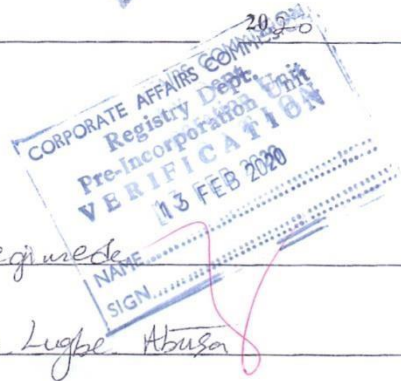 2020
CORPORATE AFFAIRS COMMISSION
Registry Dept.
Pre-Incorporation Unit
VERIFICATION
13 FEB 2020
NAME
SIGN
Lugbe Abuja